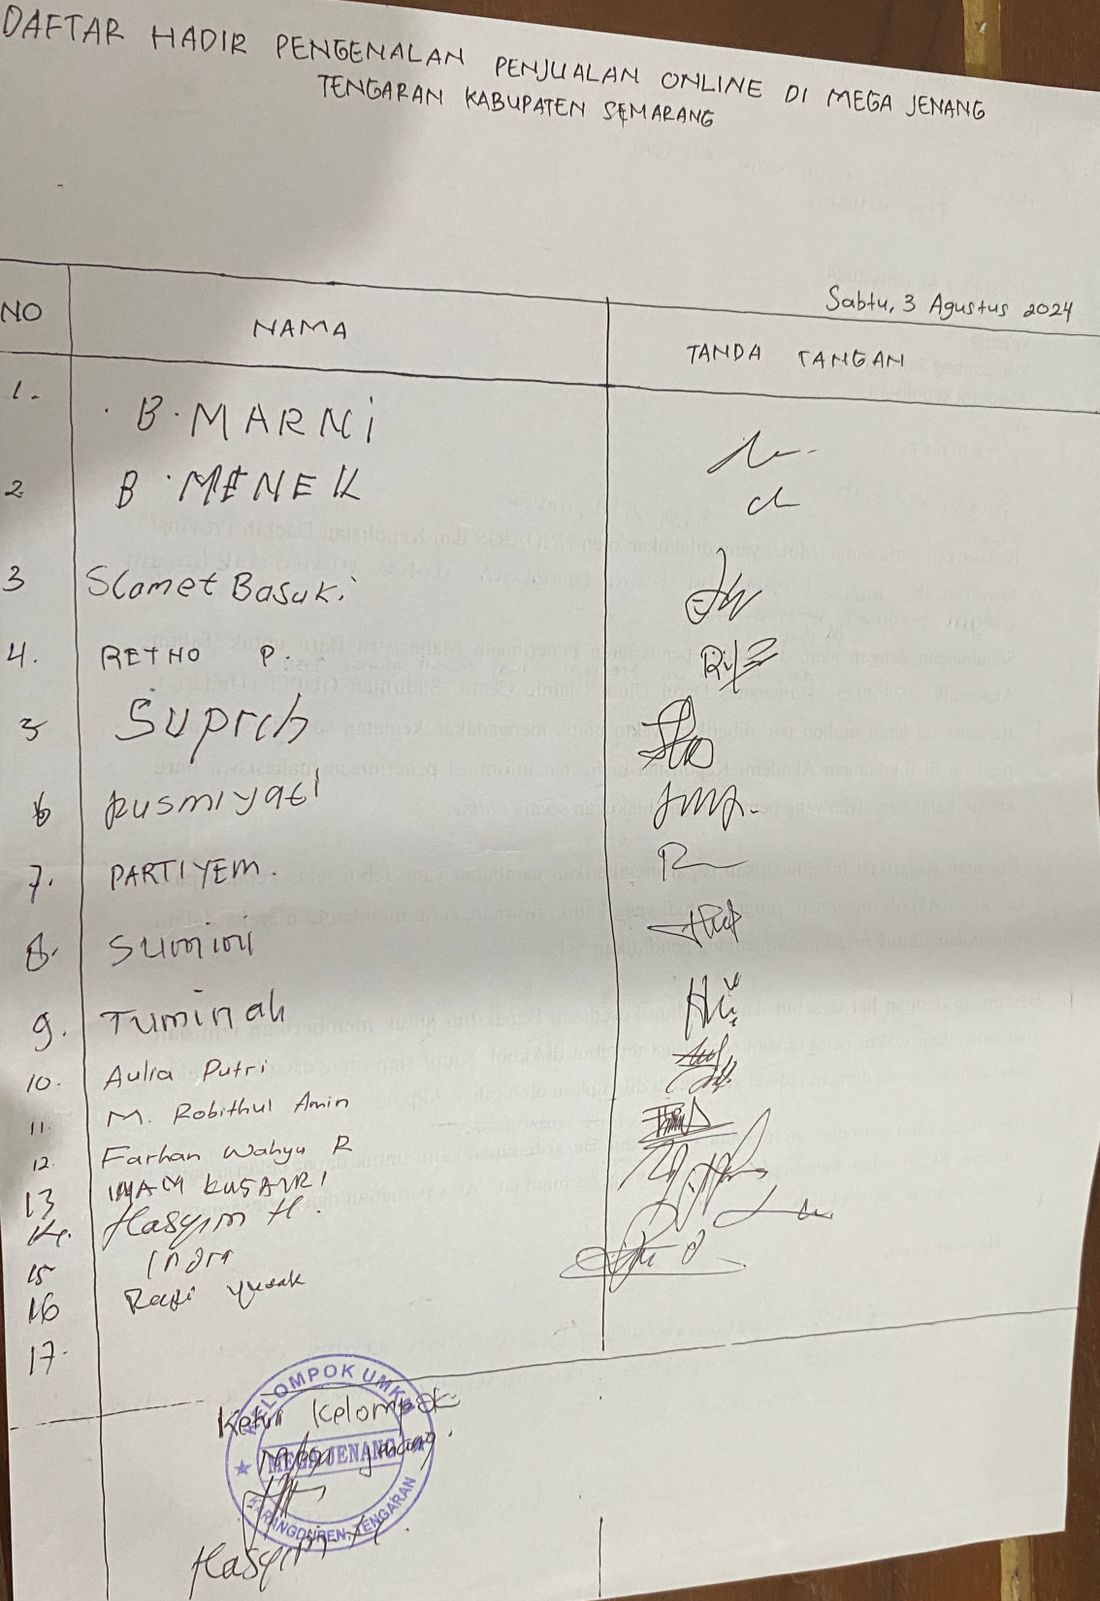 DAFTAR HADIR PENGENALAN PENJUALAN ONLINE DI MEGA JENANG
TENGARAN KABUPATEN SEMARANG
Sabtu, 3 Agustus 2024
NO NAMA TANDA TANGAN
1. B. MARNi
2 B. MENEK
3 Slamet Basuki
4. RETNO P.
5 Suprih
6 Rusmiyati
7. PARTIYEM.
8. Sumini
9. Tuminah
10. Aulia Putri
11. M. Robithul Amin
12. Farhan Wahyu R
13 IMAM KUSAIRI
14. Hasyim H.
15 Indra
16 Rafi Yusak
17.
KELOMPOK UMKM
Ketua Kelompok
Mega Jenang.
MEGA JENANG
KARANGDUREN, TENGARAN
Hasyim H.